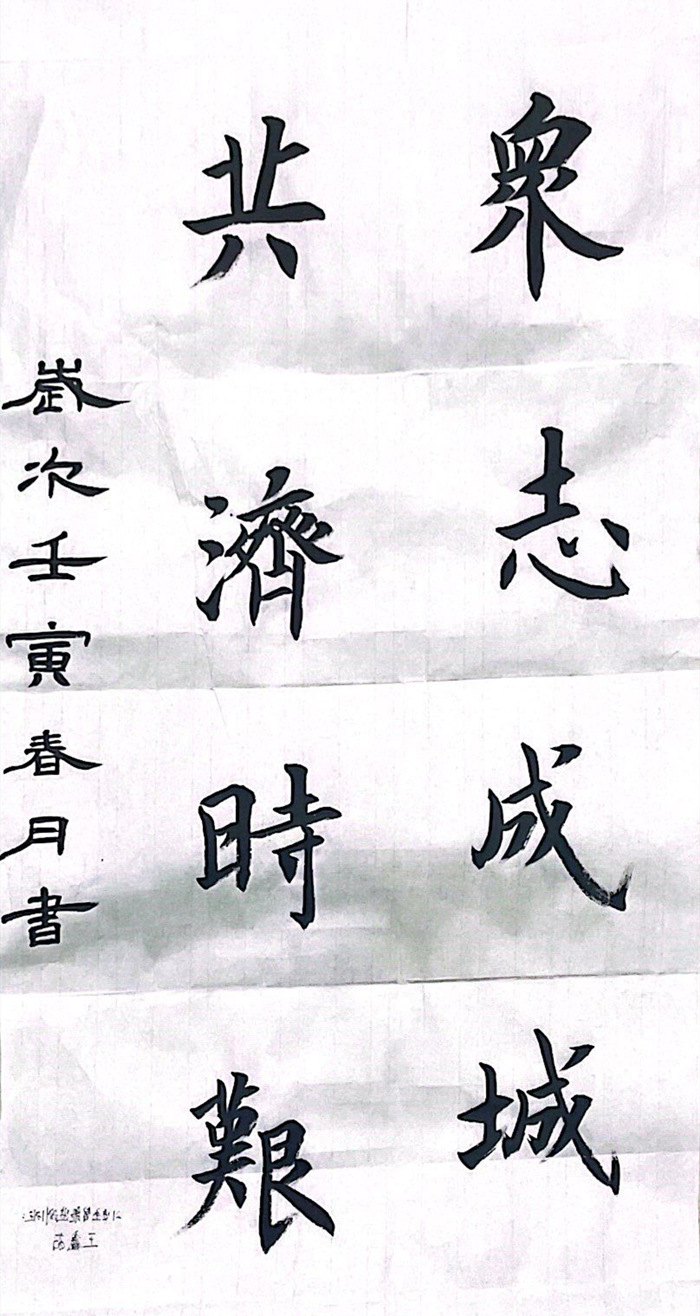 衆志成城
共濟時艱
歲次壬寅春月書